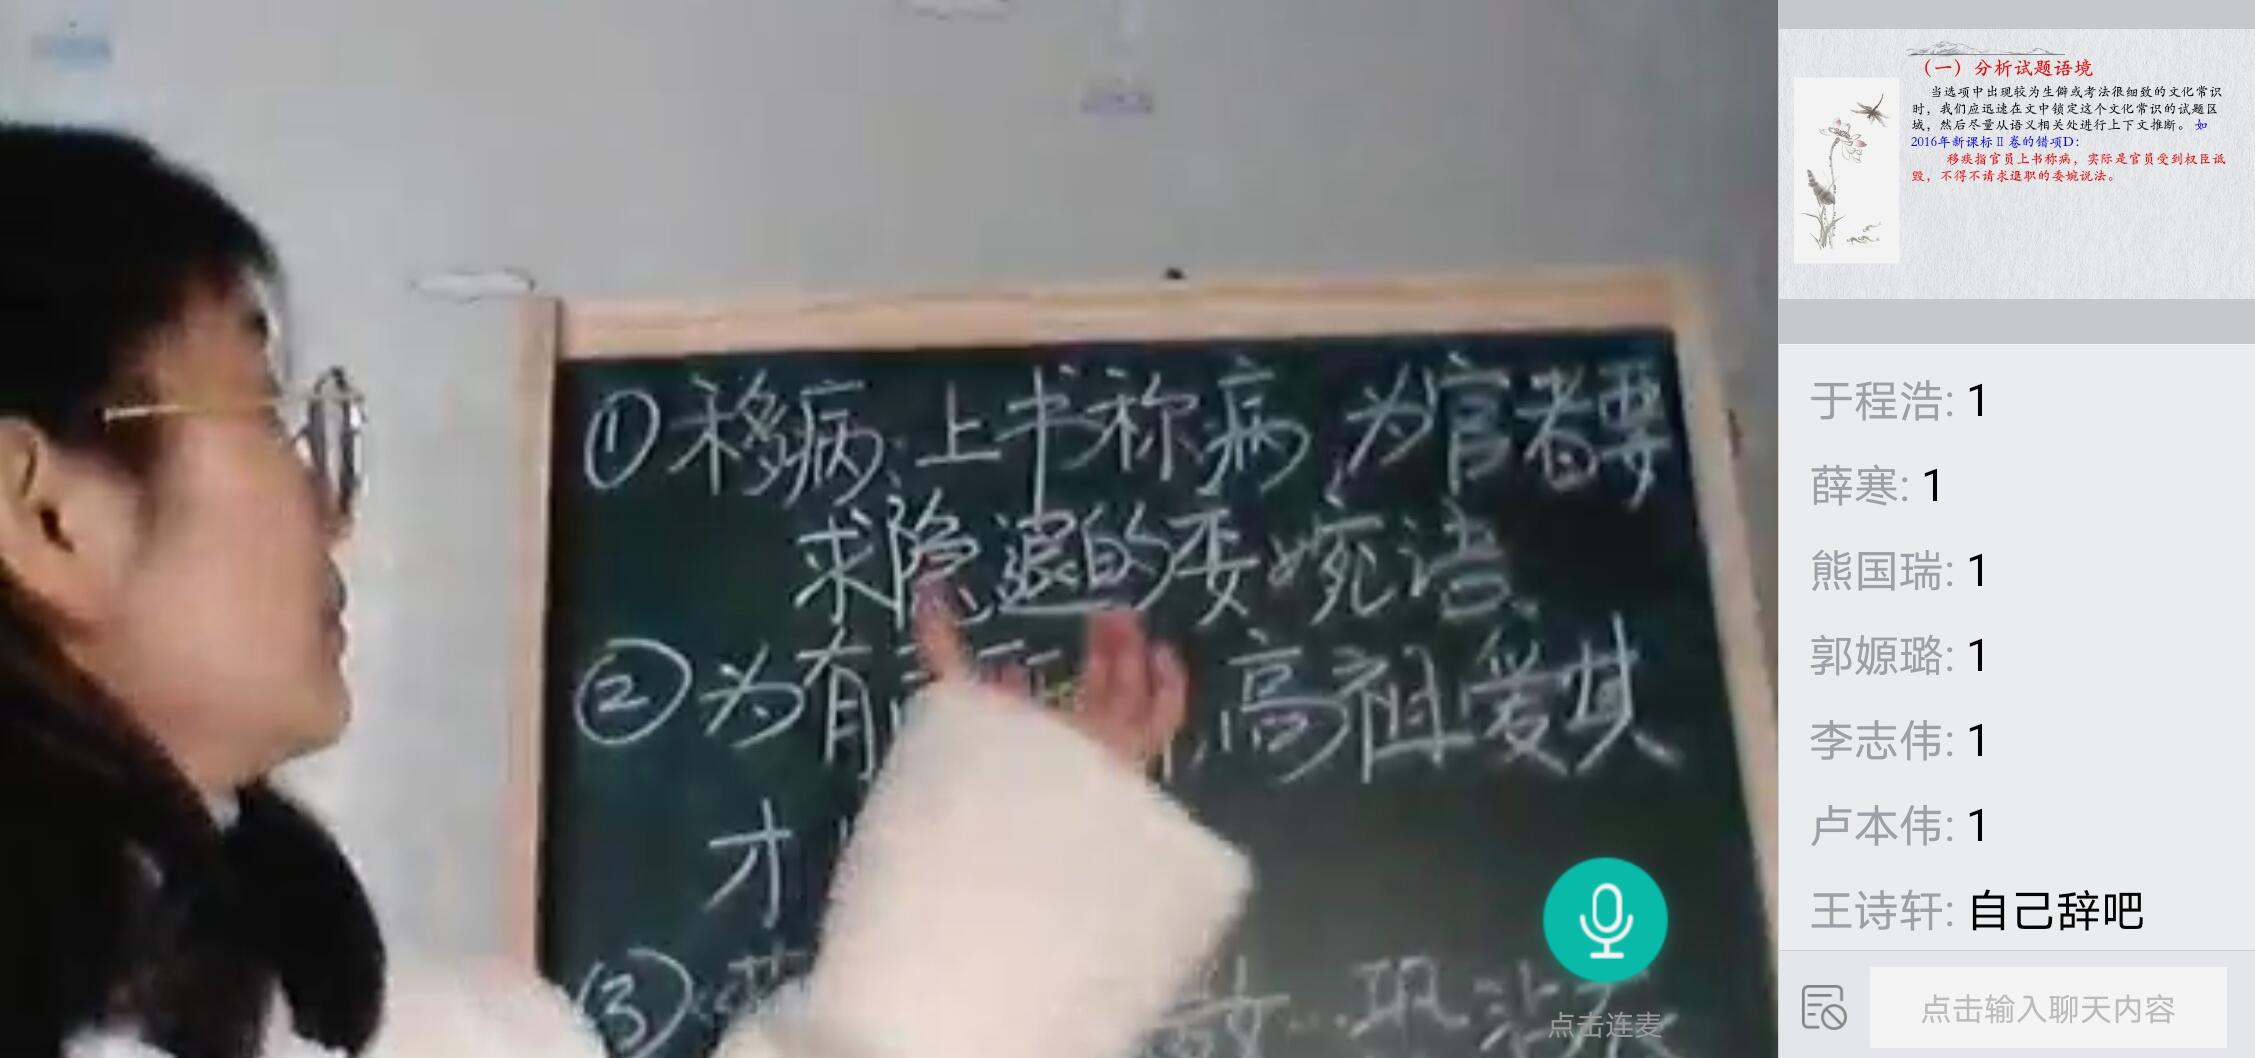 ①移病:上书称病,为官者要
求隐退的委婉语。
②为有
,高祖爱其
才
③
女…恐沾
点击连麦
（一）分析试题语境
当选项中出现较为生僻或考法很细致的文化常识
时，我们应迅速在文中锁定这个文化常识的试题区
域，然后尽量从语义相关处进行上下文推断。 如
2016年新课标Ⅱ卷的错项D：
移疾指官员上书称病，实际是官员受到权臣诋
毁，不得不请求退职的委婉说法。
于程浩: 1
薛寒: 1
熊国瑞: 1
郭嫄璐: 1
李志伟: 1
卢本伟: 1
王诗轩: 自己辞吧
点击输入聊天内容